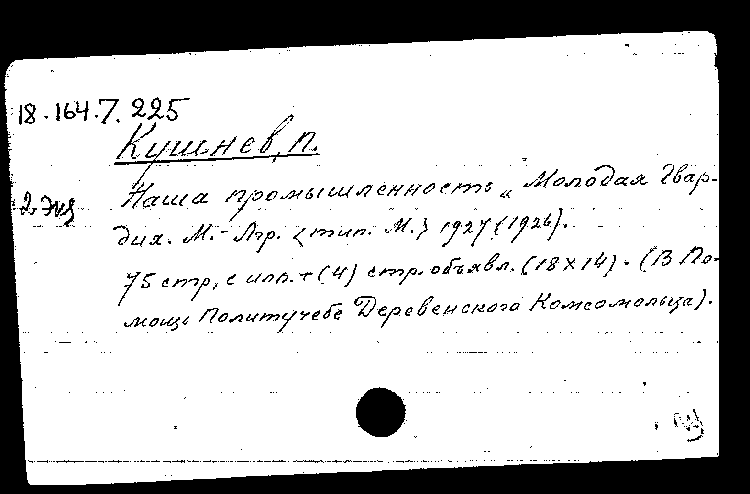 18.164.7.225
Кушнев, П.
2 экз
Наша промышленность „Молодая Гвар-
дия. М.- Лгр. <тип. М.> 1927 (1926).
75 стр, с илл. + (4) стр. объявл. (18 x 14). (В По-
мощь Политучебе Деревенского Комсомольца).